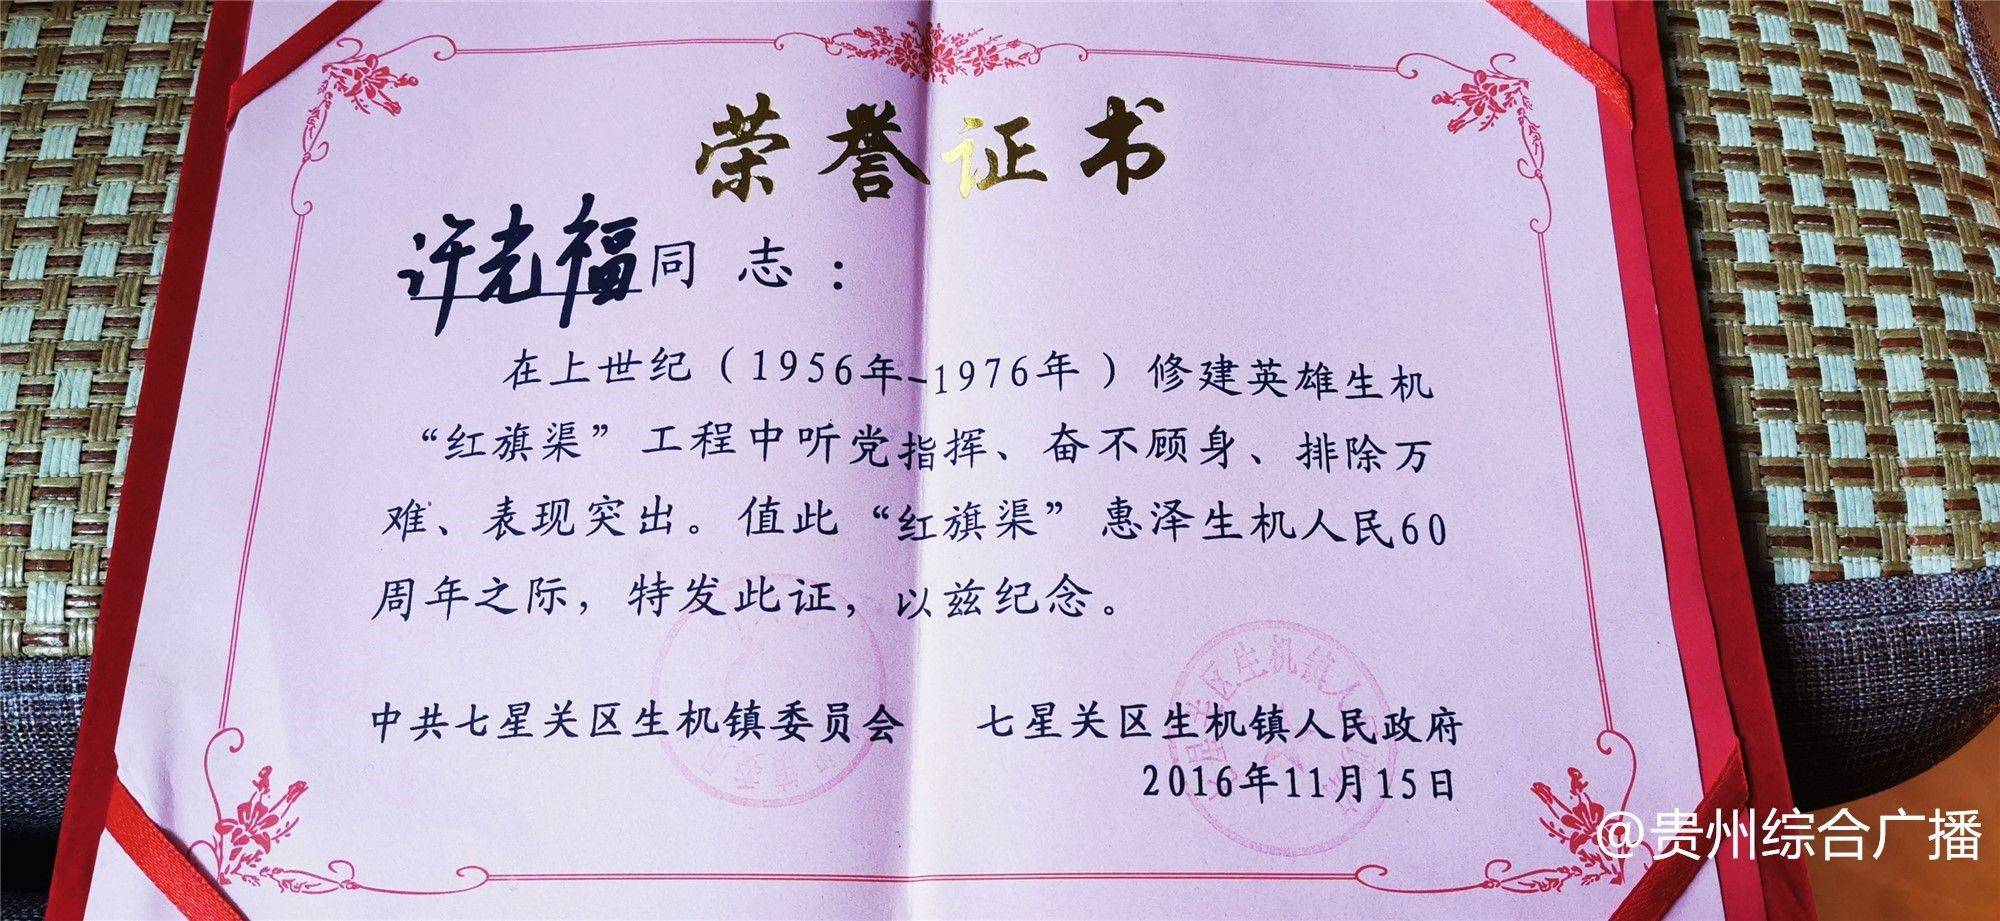 荣誉证书
许光福同志：
在上世纪（1956年-1976年）修建英雄生机
“红旗渠”工程中听党指挥、奋不顾身、排除万
难、表现突出。值此“红旗渠”惠泽生机人民60
周年之际，特发此证，以兹纪念。
中共七星关区生机镇委员会 七星关区生机镇人民政府
2016年11月15日
@贵州综合广播